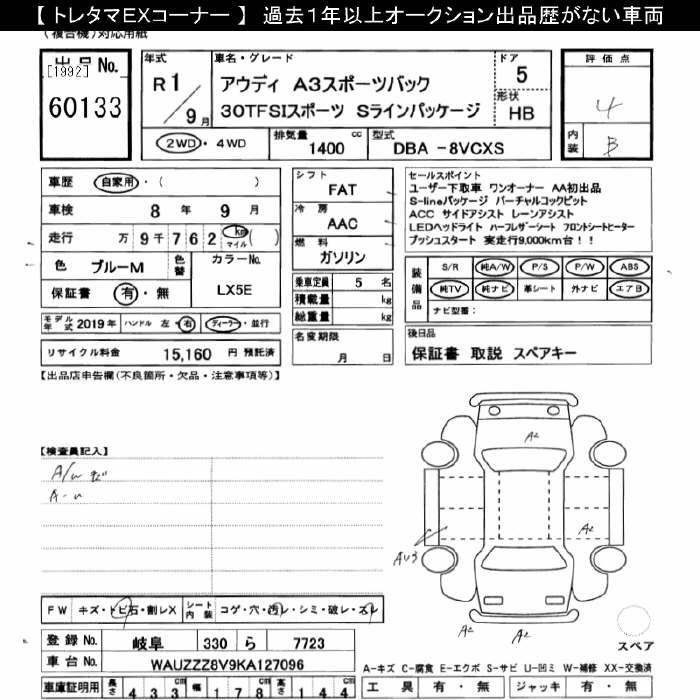 【 トレタマEXコーナー 】 過去1年以上オークション出品歴がない車両
(複合機)対応用紙
出品No.
[1992]
60133
年式
R 1
9 月
車名・グレード
アウディ A3スポーツバック
30TFSIスポーツ Sラインパッケージ
ドア
5
形状
HB
2WD・4WD
排気量
1400 cc
型式
DBA -8VCXS
評価点
4
内装
B
車歴 自家用・( )
車検 8 年 9 月
走行 万 9 千 7 6 2 km マイル ( )
色 ブルーM
色替
カラーNo.
LX5E
保証書 有・無
モデル年式 2019年 ハンドル 左・右 ディーラー・並行
リサイクル料金 15,160 円 預託済
シフト
FAT
冷房
AAC
燃料
ガソリン
乗車定員 5 名
積載量 kg
総重量 kg
名変期限
月 日
セールスポイント
ユーザー下取車 ワンオーナー AA初出品
S-lineパッケージ バーチャルコックピット
ACC サイドアシスト レーンアシスト
LEDヘッドライト ハーフレザーシート フロントシートヒーター
プッシュスタート 実走行9,000km台！！
装備品
S/R 純A/W P/S P/W ABS
純TV 純ナビ 革シート 外ナビ エアB
ナビ型番：
後日品
保証書 取説 スペアキー
【出品店申告欄(不良箇所・欠品・注意事項等)】
【検査員記入】
A/w
A-u
A2
A2
AU3
A2
A2
スペア
FW キズ・トビ石・割レX
シート内装 コゲ・穴・汚レ・シミ・破レ・スレ
登録No. 岐阜 330 ら 7723
車台No. WAUZZZ8V9KA127096
A-キズ C-腐食 E-エクボ S-サビ U-凹ミ W-補修 XX-交換済
車庫証明用 長さ 4 3 3 cm 幅 1 7 8 cm 高さ 1 4 4 cm
工具 有・無 ジャッキ 有・無